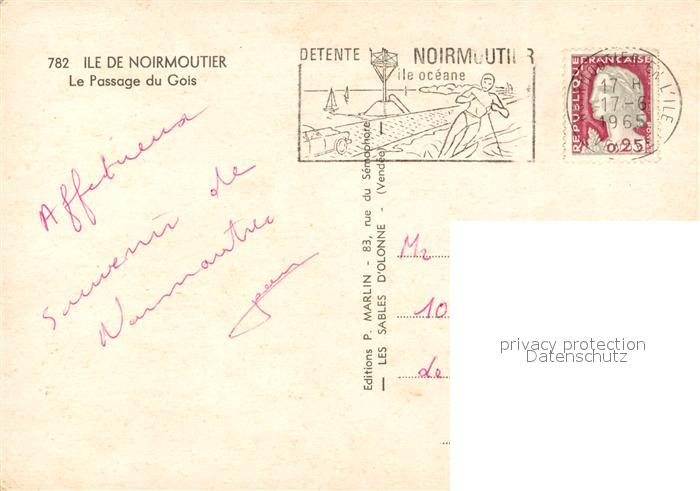 782 ILE DE NOIRMOUTIER
Le Passage du Gois
DETENTE NOIRMOUTIER
île océane
REPUBLIQUE FRANCAISE
0,25
POSTES
EN L'ILE
17 H
17-6
1965
Affectueux
souvenir de
Noirmoutier
Editions P. MARLIN - 83, rue du Sémaphore
— LES SABLES D'OLONNE - (Vendée) —
Mr
10
de
privacy protection
Datenschutz